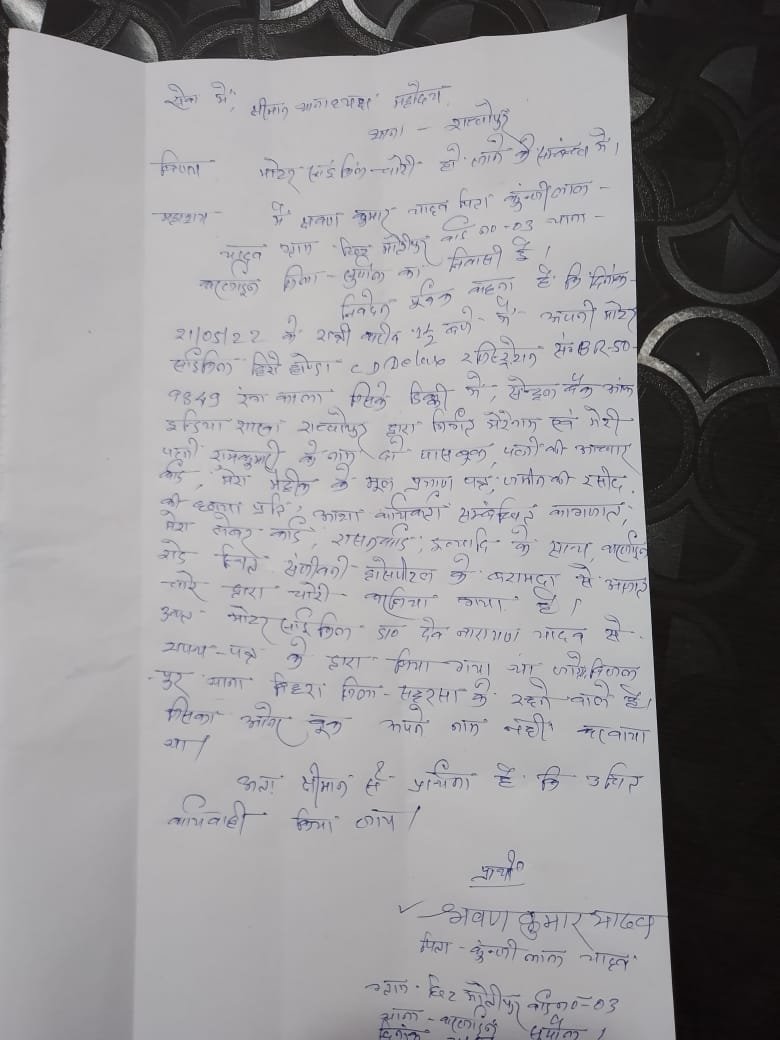 सेवा में, श्रीमान थानाध्यक्ष महोदय,
थाना - राघोपुर
विषय मोटर साईकिल चोरी हो जाने के सम्बन्ध में।
महाशय - मैं श्रवण कुमार यादव पिता कुंन्जी लाल -
यादव ग्राम वार्ड no-03 थाना -
जिला - सुपौल का निवासी हूँ।
निवेदन पूर्वक कहना है कि दिनांक -
21/05/22 के रात्री करीब बजे मैं अपनी मोटर
साईकिल हिरो होण्डा CD Delexe रजिस्ट्रेशन सं० BR-50-
9849 रंग काला जिसके डिक्की में, सेन्ट्रल बैंक ऑफ
इंडिया शाखा राघोपुर द्वारा निर्गत मेरे नाम एवं मेरी
पत्नी रामकुमारी के नाम दो पासबुक, पत्नी की आधार
कार्ड, मेरा मैट्रीक के मूल प्रमाण पत्र, जमीन की रसीद
की छाया प्रति, आशा कार्यकर्ता सम्बंधित कागजात,
मेरा लेबर कार्ड, रासन कार्ड, इत्यादि के साथ,
रोड स्थित संजीवनी होसपीटल के बरामदा से अज्ञात
चोर द्वारा चोरी कर लिया गया है।
उक्त मोटर साईकिल डा० देव नारायण यादव से
शपथ-पत्र के द्वारा लिया गया था जो
पुर थाना बिहरा जिला - सहरसा के रहने वाले है।
जिसका ओनर बूक अपने नाम नहीं करवाया
था।
अतः श्रीमान से प्रार्थना है कि उचित
कार्यवाही किया जाय।
प्रार्थी
श्रवण कुमार यादव
पिता - कुंन्जी लाल यादव
ग्राम - वार्ड no-03
थाना - सुपौल।
दिनांक